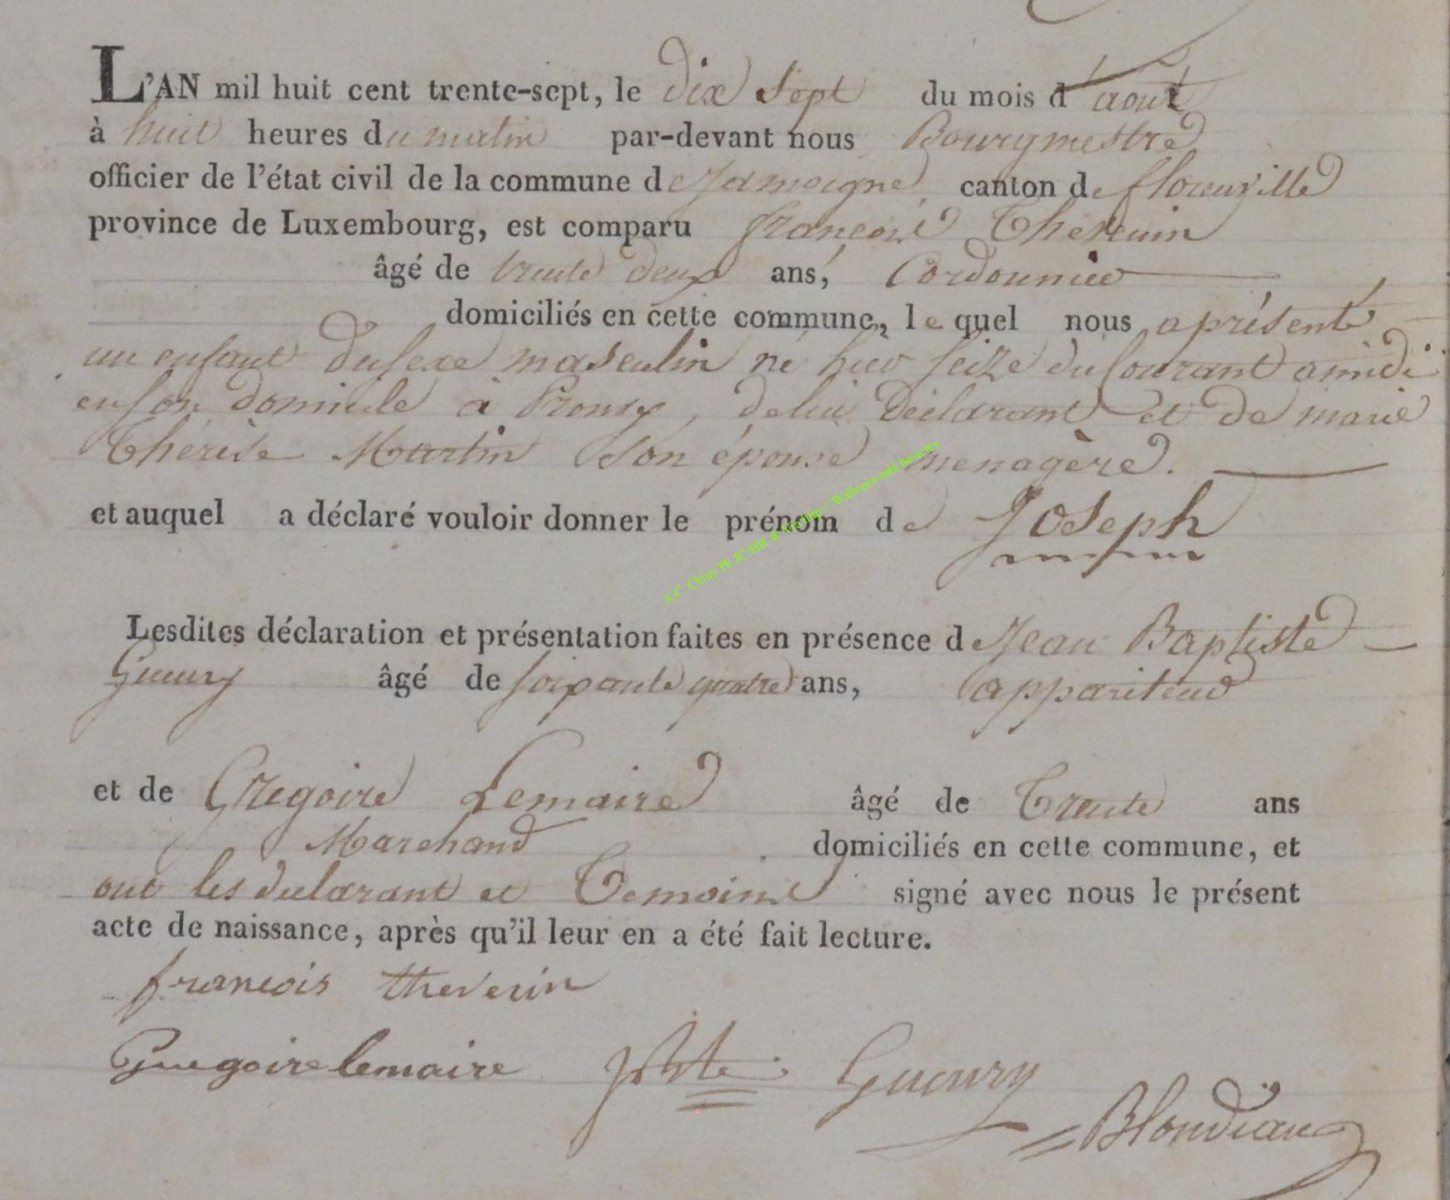 L'AN mil huit cent trente-sept, le dix Sept du mois d'aout
à huit heures du matin par-devant nous Bourgmestre
officier de l'état civil de la commune de Jamoigne canton de florenville
province de Luxembourg, est comparu françois Théverin
âgé de trente deux ans, Cordonnier
domiciliés en cette commune, le quel nous a présenté
un enfant du sexe masculin né hier seize du Courant a midi
en son domicile à Prouvy, de lui Déclarant et de marie
Thérèse Martin Son épouse menagère.
et auquel a déclaré vouloir donner le prénom de Joseph
A.C. Chiny Ph JC HB
Lesdites déclaration et présentation faites en présence de Jean Baptiste
Gueury âgé de soixante quatre ans, appariteur
et de Grégoire Lemaire âgé de Trente ans
Marchand domiciliés en cette commune, et
ont les declarant et Temoins signé avec nous le présent
acte de naissance, après qu'il leur en a été fait lecture.
francois theverin
Gregoire lemaire JBte Gueury
Blondiau